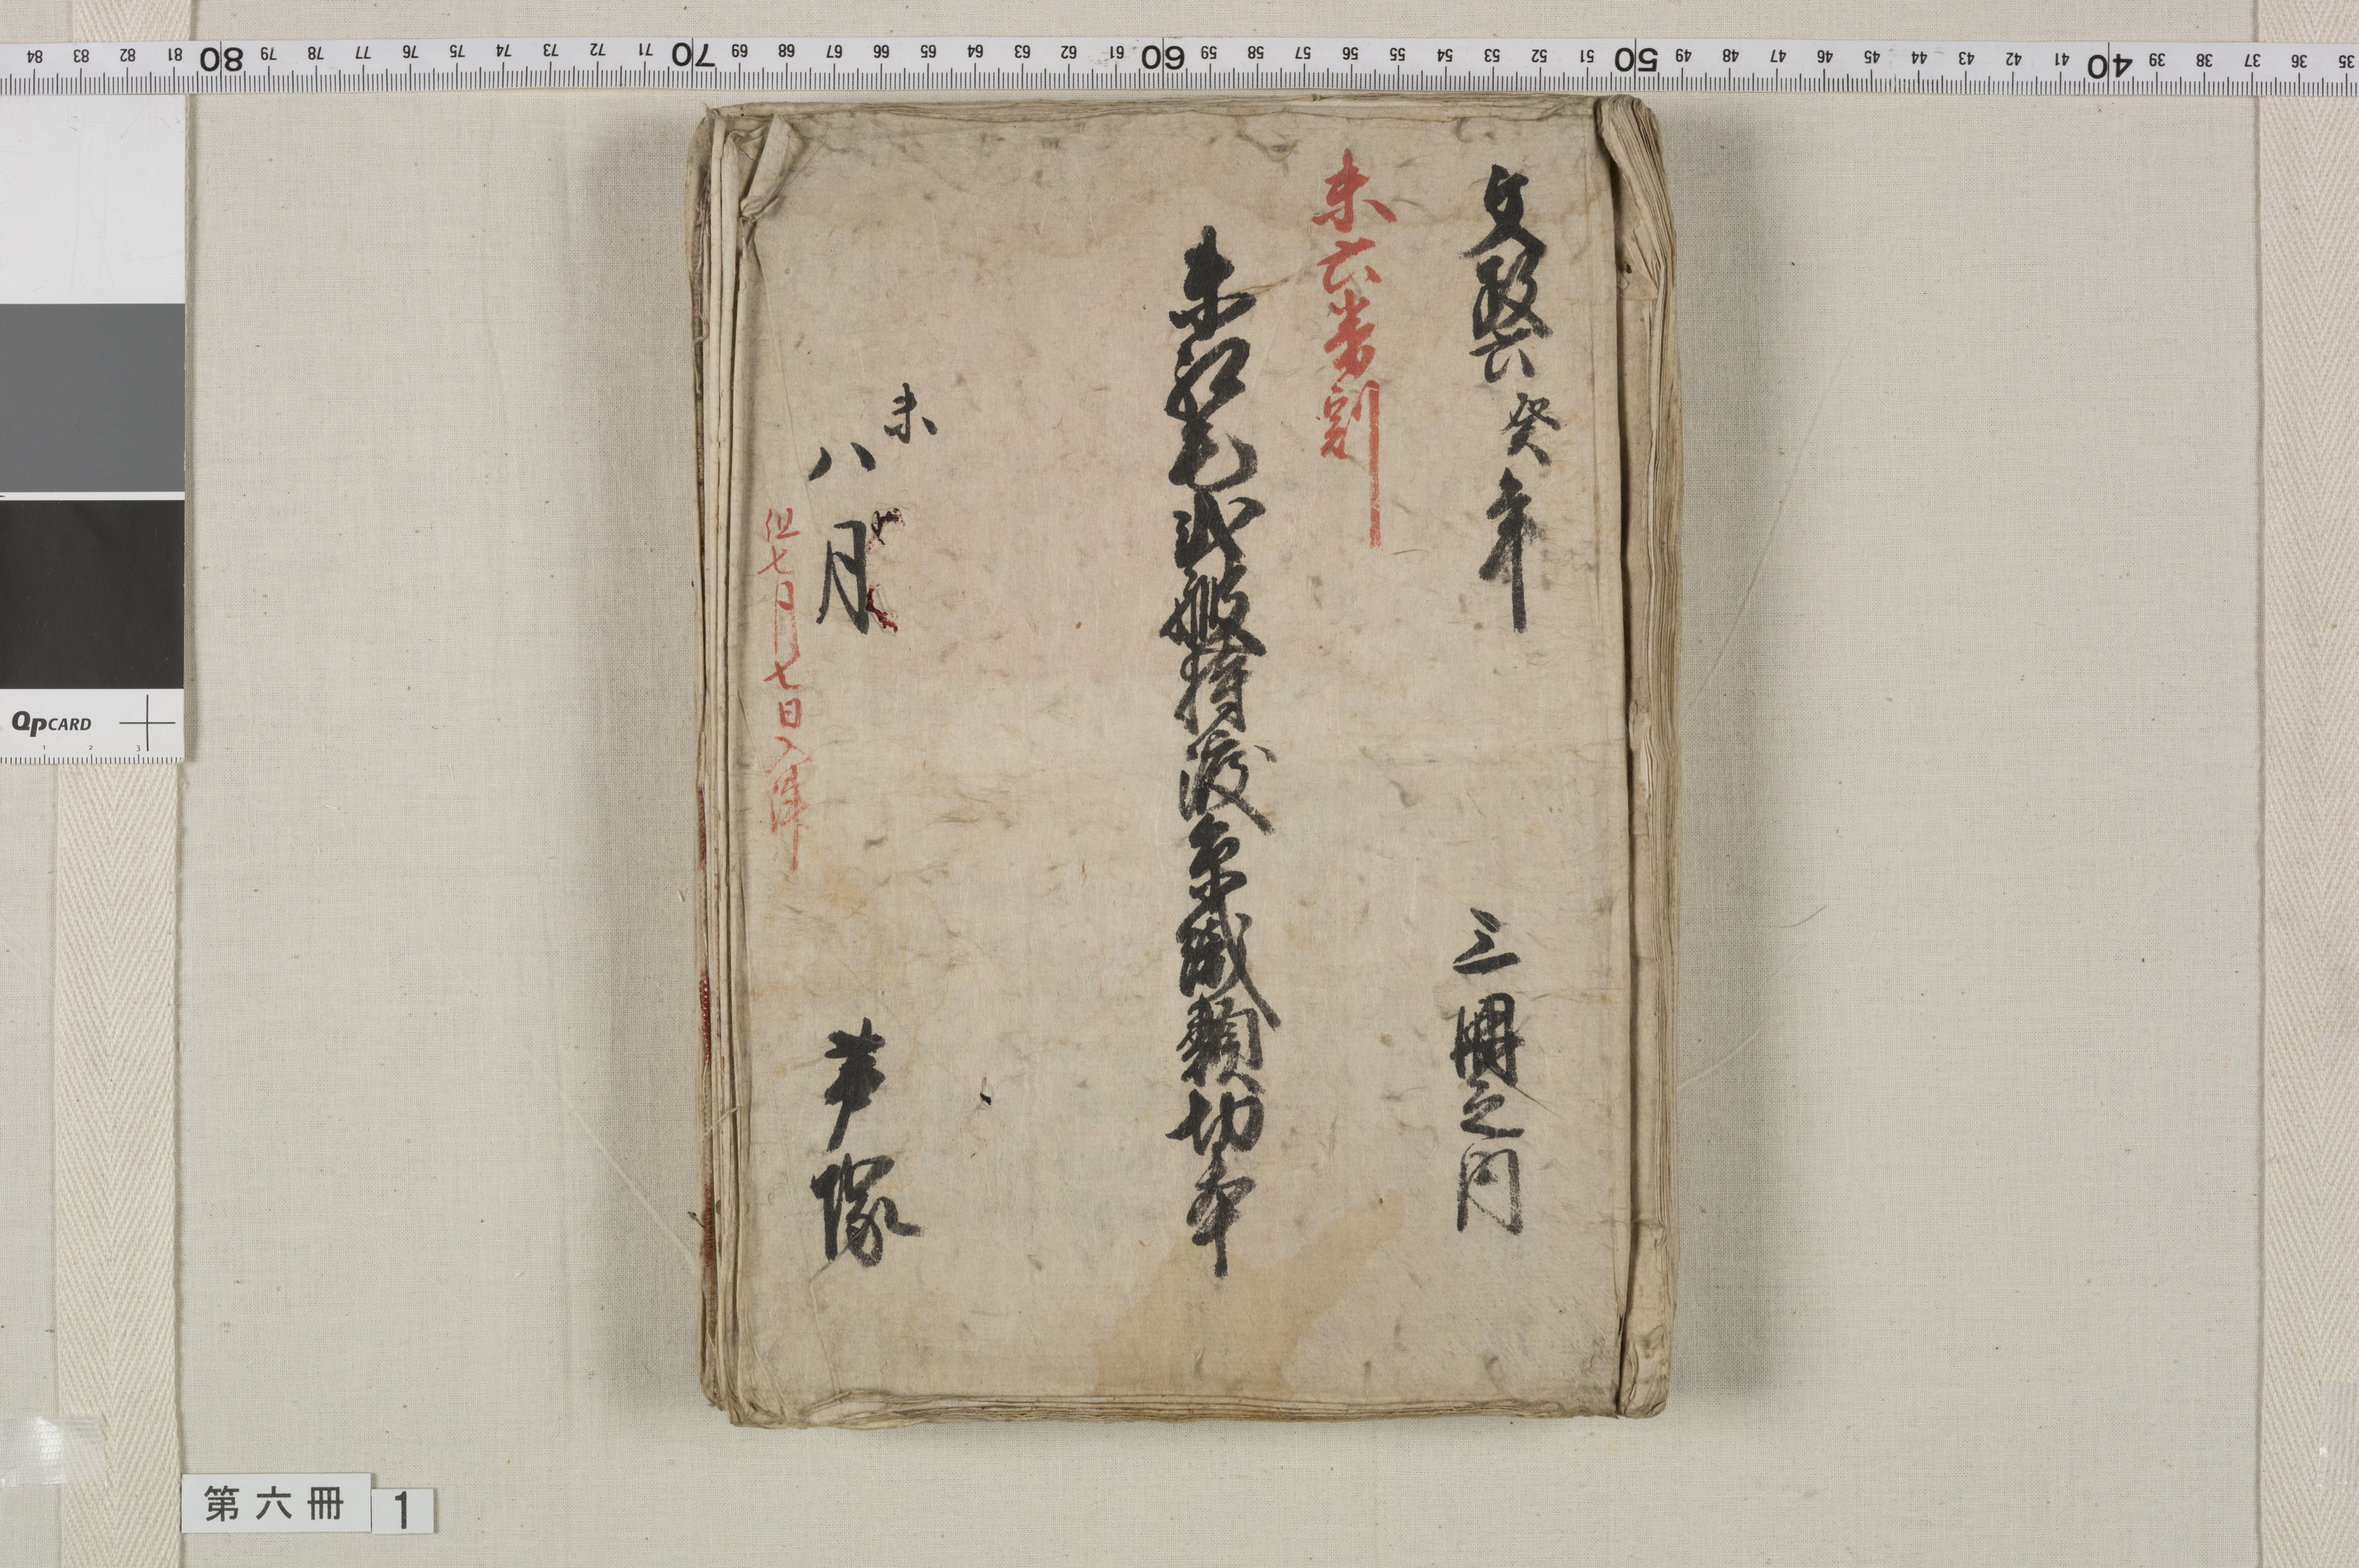 84 83 82 81 80 79 78 77 76 75 74 73 72 71 70 69 68 67 66 65 64 63 62 61 60 59 58 57 56 55 54 53 52 51 50 49 48 47 46 45 44 43 42 41 40 39 38 37 36 35
文政六癸年
三冊之内
未六番割
未紅毛弐艘持渡糸織類切本
未
八月
但七月七日入津
華塚
QPCARD
1 2 3
第六冊 1